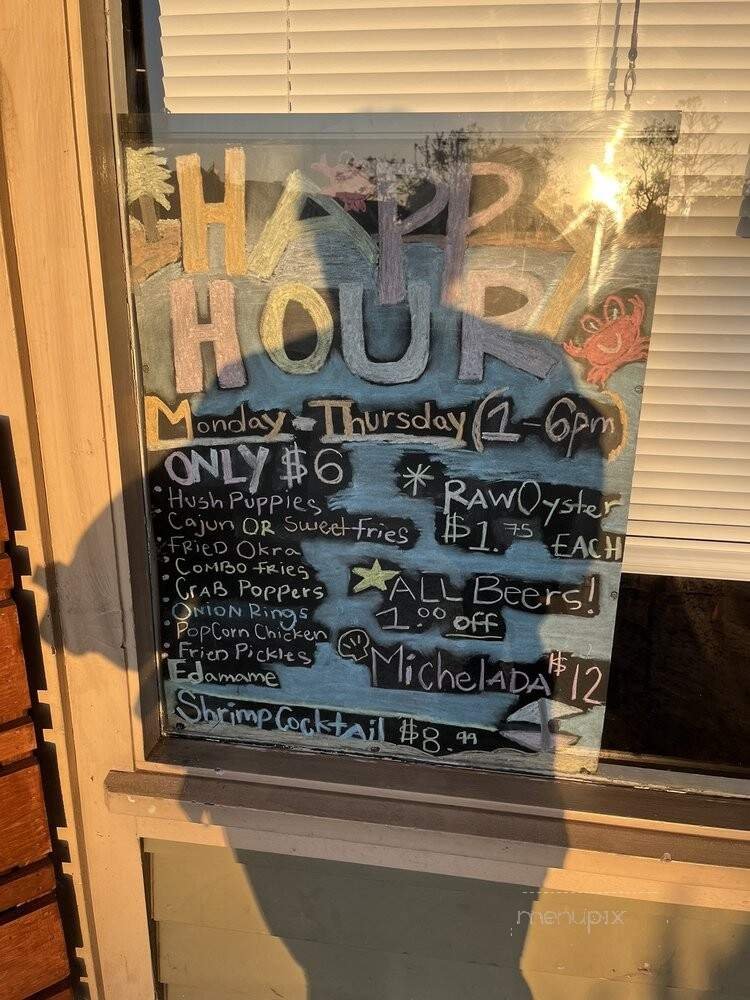 HAPPY
HOUR
Monday - Thursday (1-6pm)
ONLY $6
Hush Puppies
Cajun OR Sweet fries
Fried Okra
Combo fries
Crab Poppers
Onion Rings
PopCorn Chicken
Fried Pickles
Edamame
Shrimp Cocktail $8.99
* Raw Oyster
$1.75 EACH
ALL Beers!
1.00 off
Michelada $12
menupix